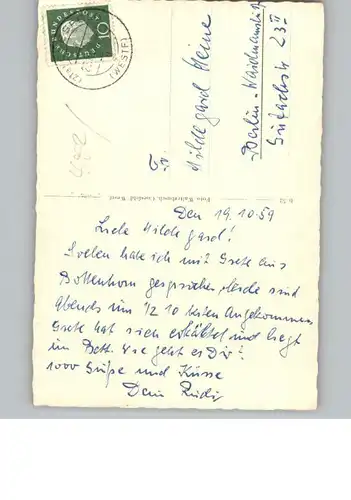 DEUTSCHE BUNDESPOST
10
(WESTF)
(21a)
Hildegard Heine
Berlin-Waidmannslust
23
Den 19.10.59
Liebe Hildegard!
Soeben habe ich mit Grete aus
Bottenhorn gesprochen, beide sind
abends um 12 10 Uhr angekommen
Grete hat sich erkältet und liegt
im Bett. Wie geht es Dir?
1000 Grüße und Küsse
Dein Rudi